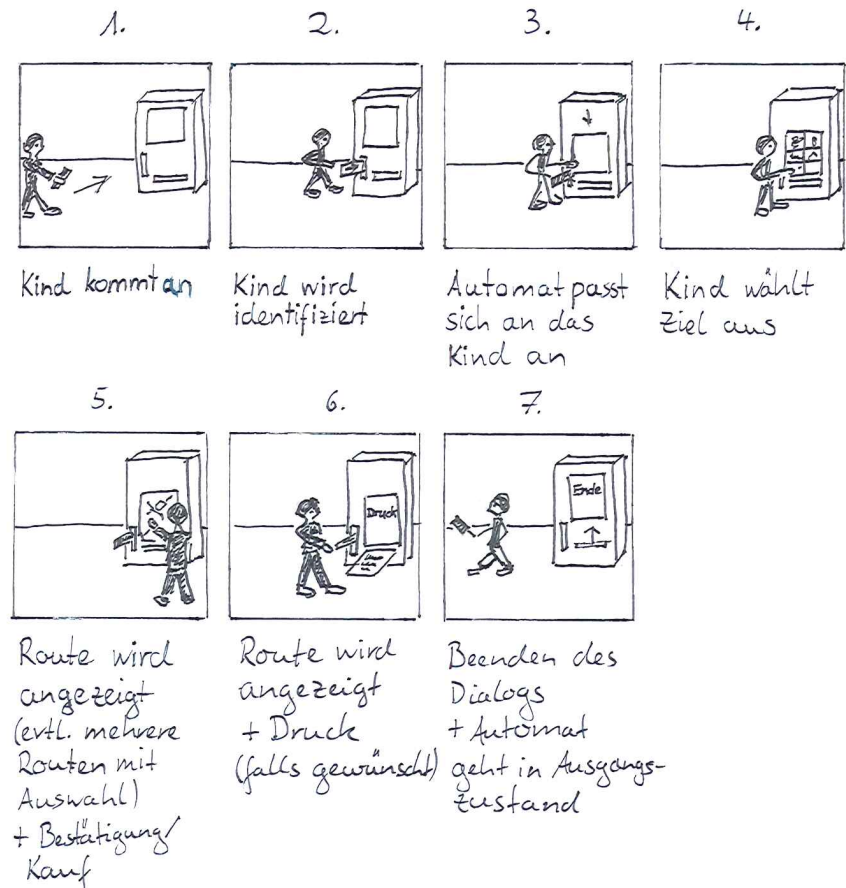 1.
2.
3.
4.
Kind kommt an
Kind wird
identifiziert
Automat passt
sich an das
Kind an
Kind wählt
Ziel aus
5.
6.
7.
Druck
Ende
Route wird
angezeigt
(evtl. mehrere
Routen mit
Auswahl)
+ Bestätigung/
Kauf
Route wird
angezeigt
+ Druck
(falls gewünscht)
Beenden des
Dialogs
+ Automat
geht in Ausgangs-
zustand